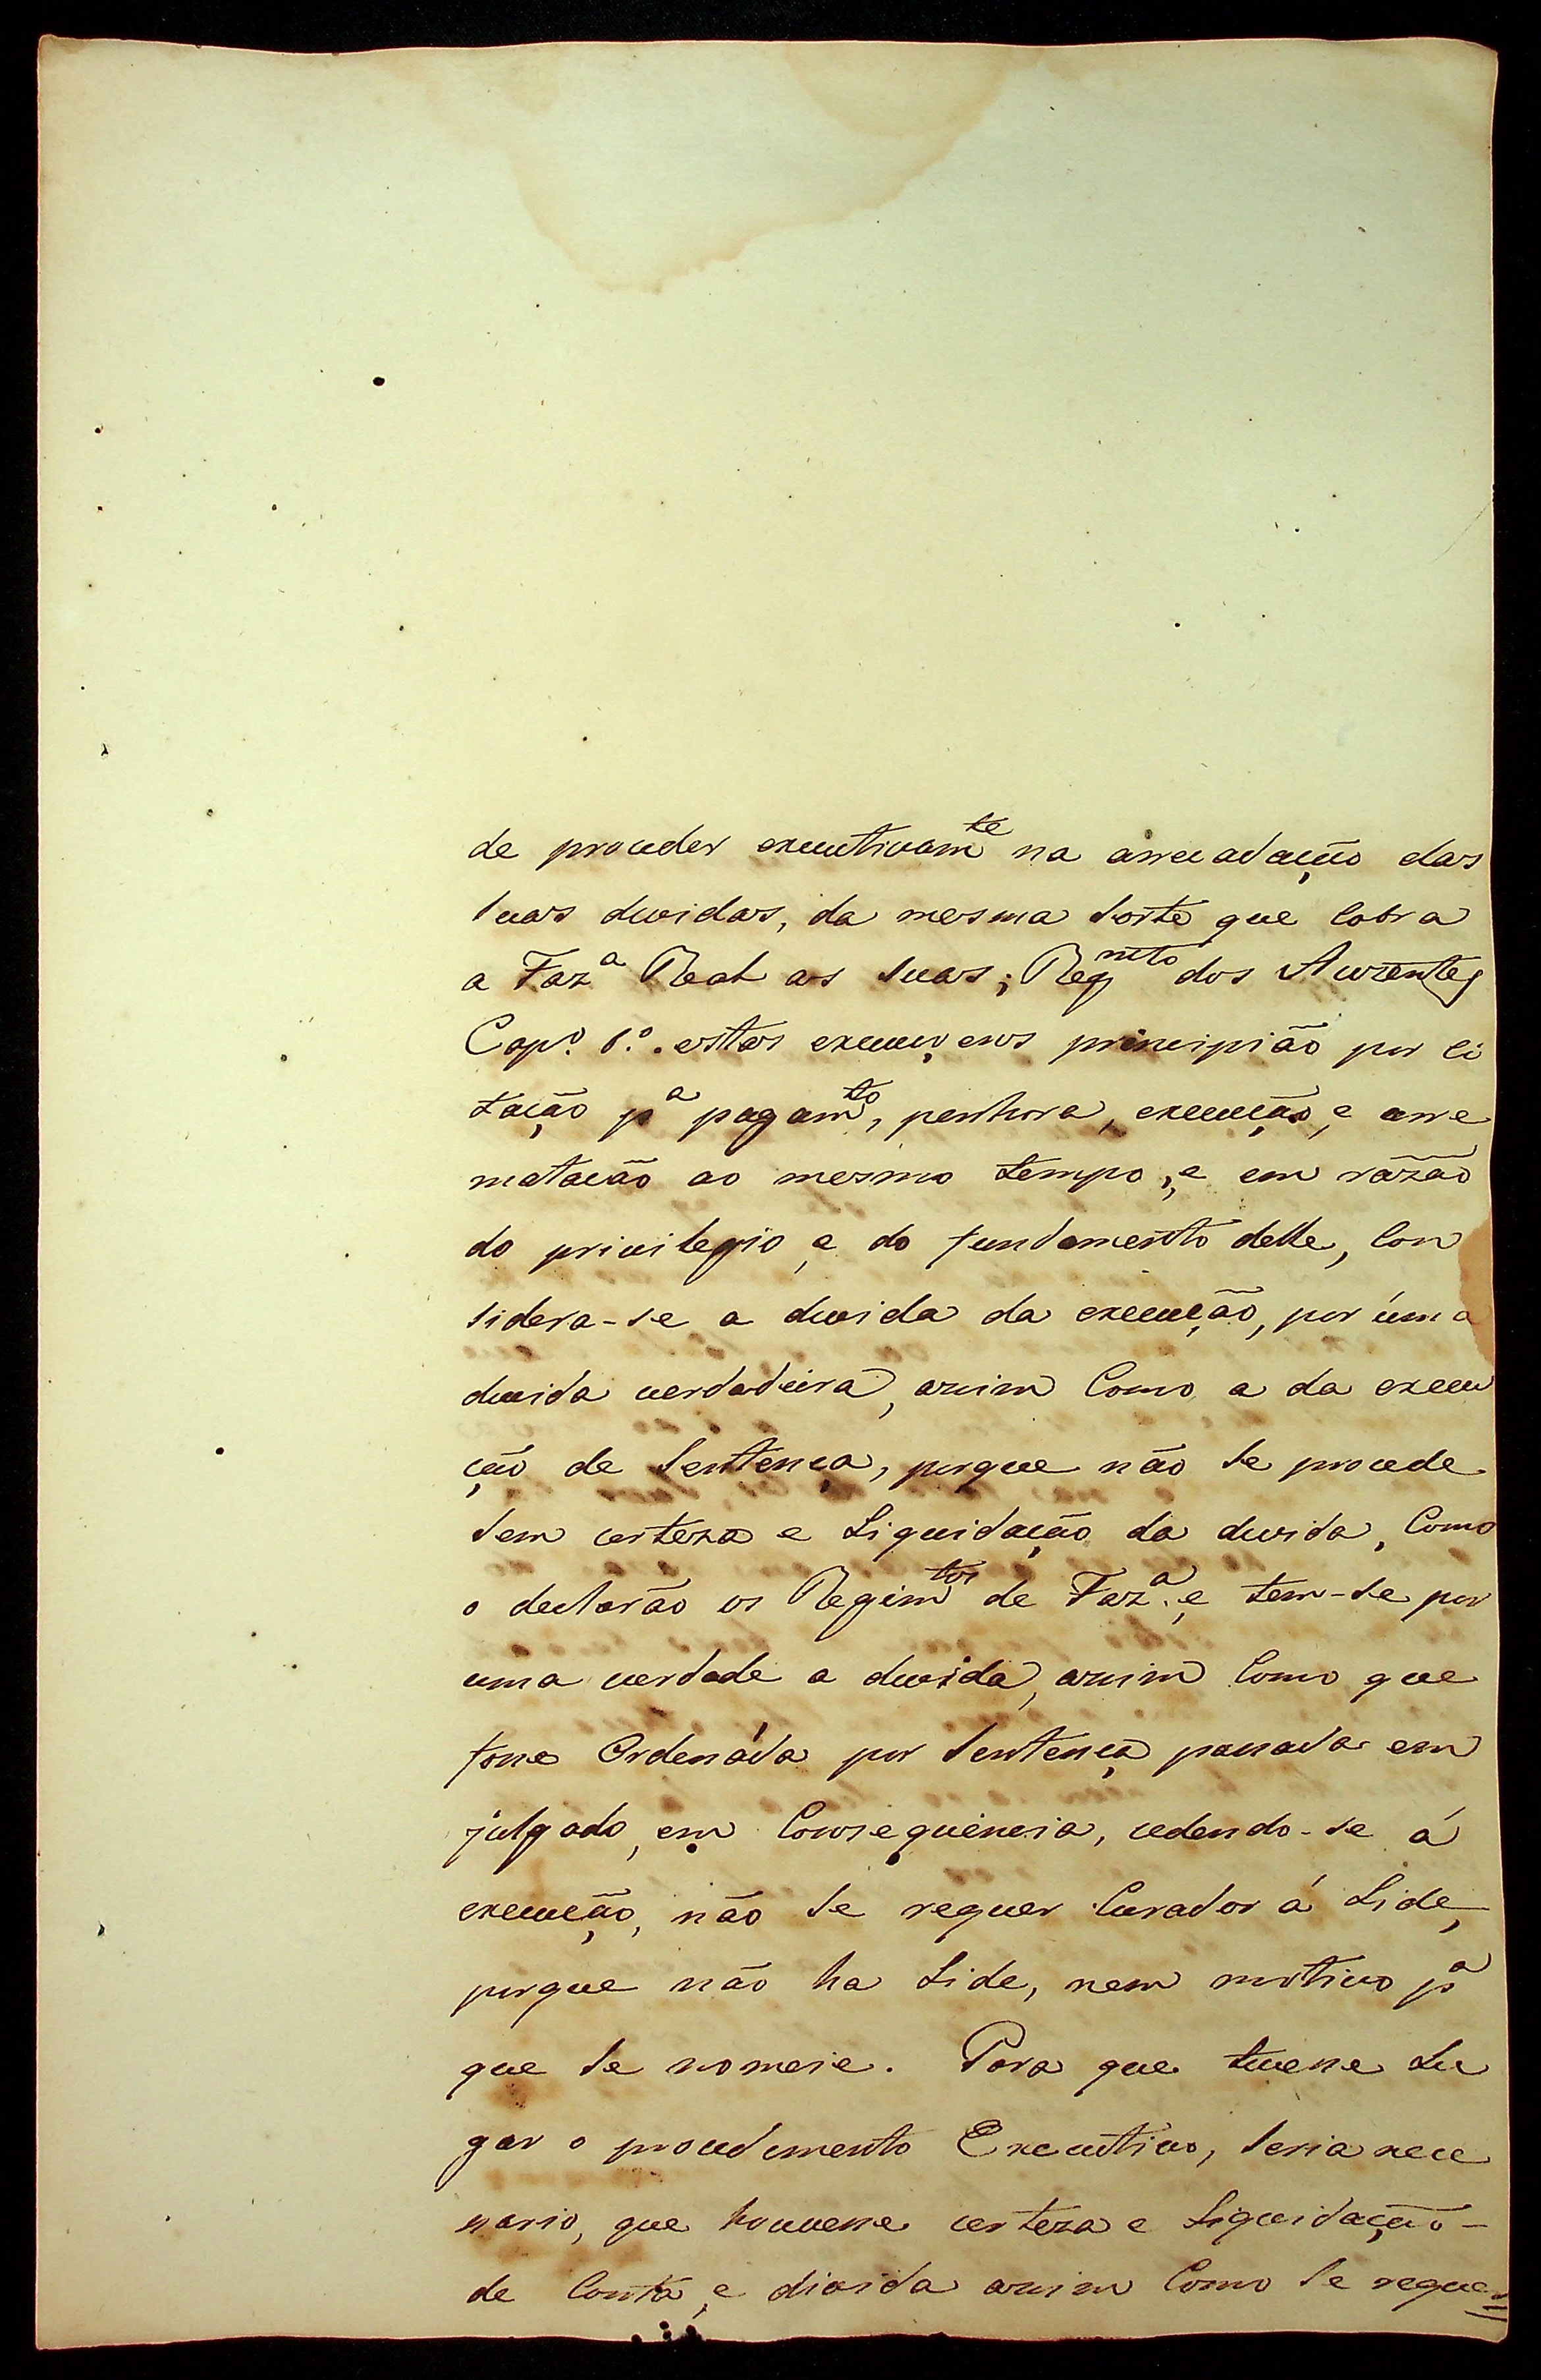 de proceder executivam.te na arrecadação das
suas dividas, da mesma sorte que cobra
a Faz.a Real as suas; Reg.mto dos Auzentes
Cap.o 6.o. estas execuções principião por ci
tação p.a pagam.to, penhora, execução, e arre
matação ao mesmo tempo, e em razão
do privilegio, e do fundamento delle, con
sidera-se a divida da execução, por úma
divida verdadeira, assim como a da execu
ção de Sentença, porque não se procede
sem certeza e Liquidação da divida, como
o declarão os Regim.tos de Faz.a e tem-se por
uma verdade a divida, assim como que
fosse Ordenáda por Sentença passada em
julgado, em consequencia, cedendo-se á
execução, não se requer Curador á Lide,
porque não ha Lide, nem motivo p.a
que se nomeie. Para que tivesse Lu
gar o procedimento Executivo, seria nece
ssario, que houvesse certeza e Liquidação
de Conta, e divida assim como se requer